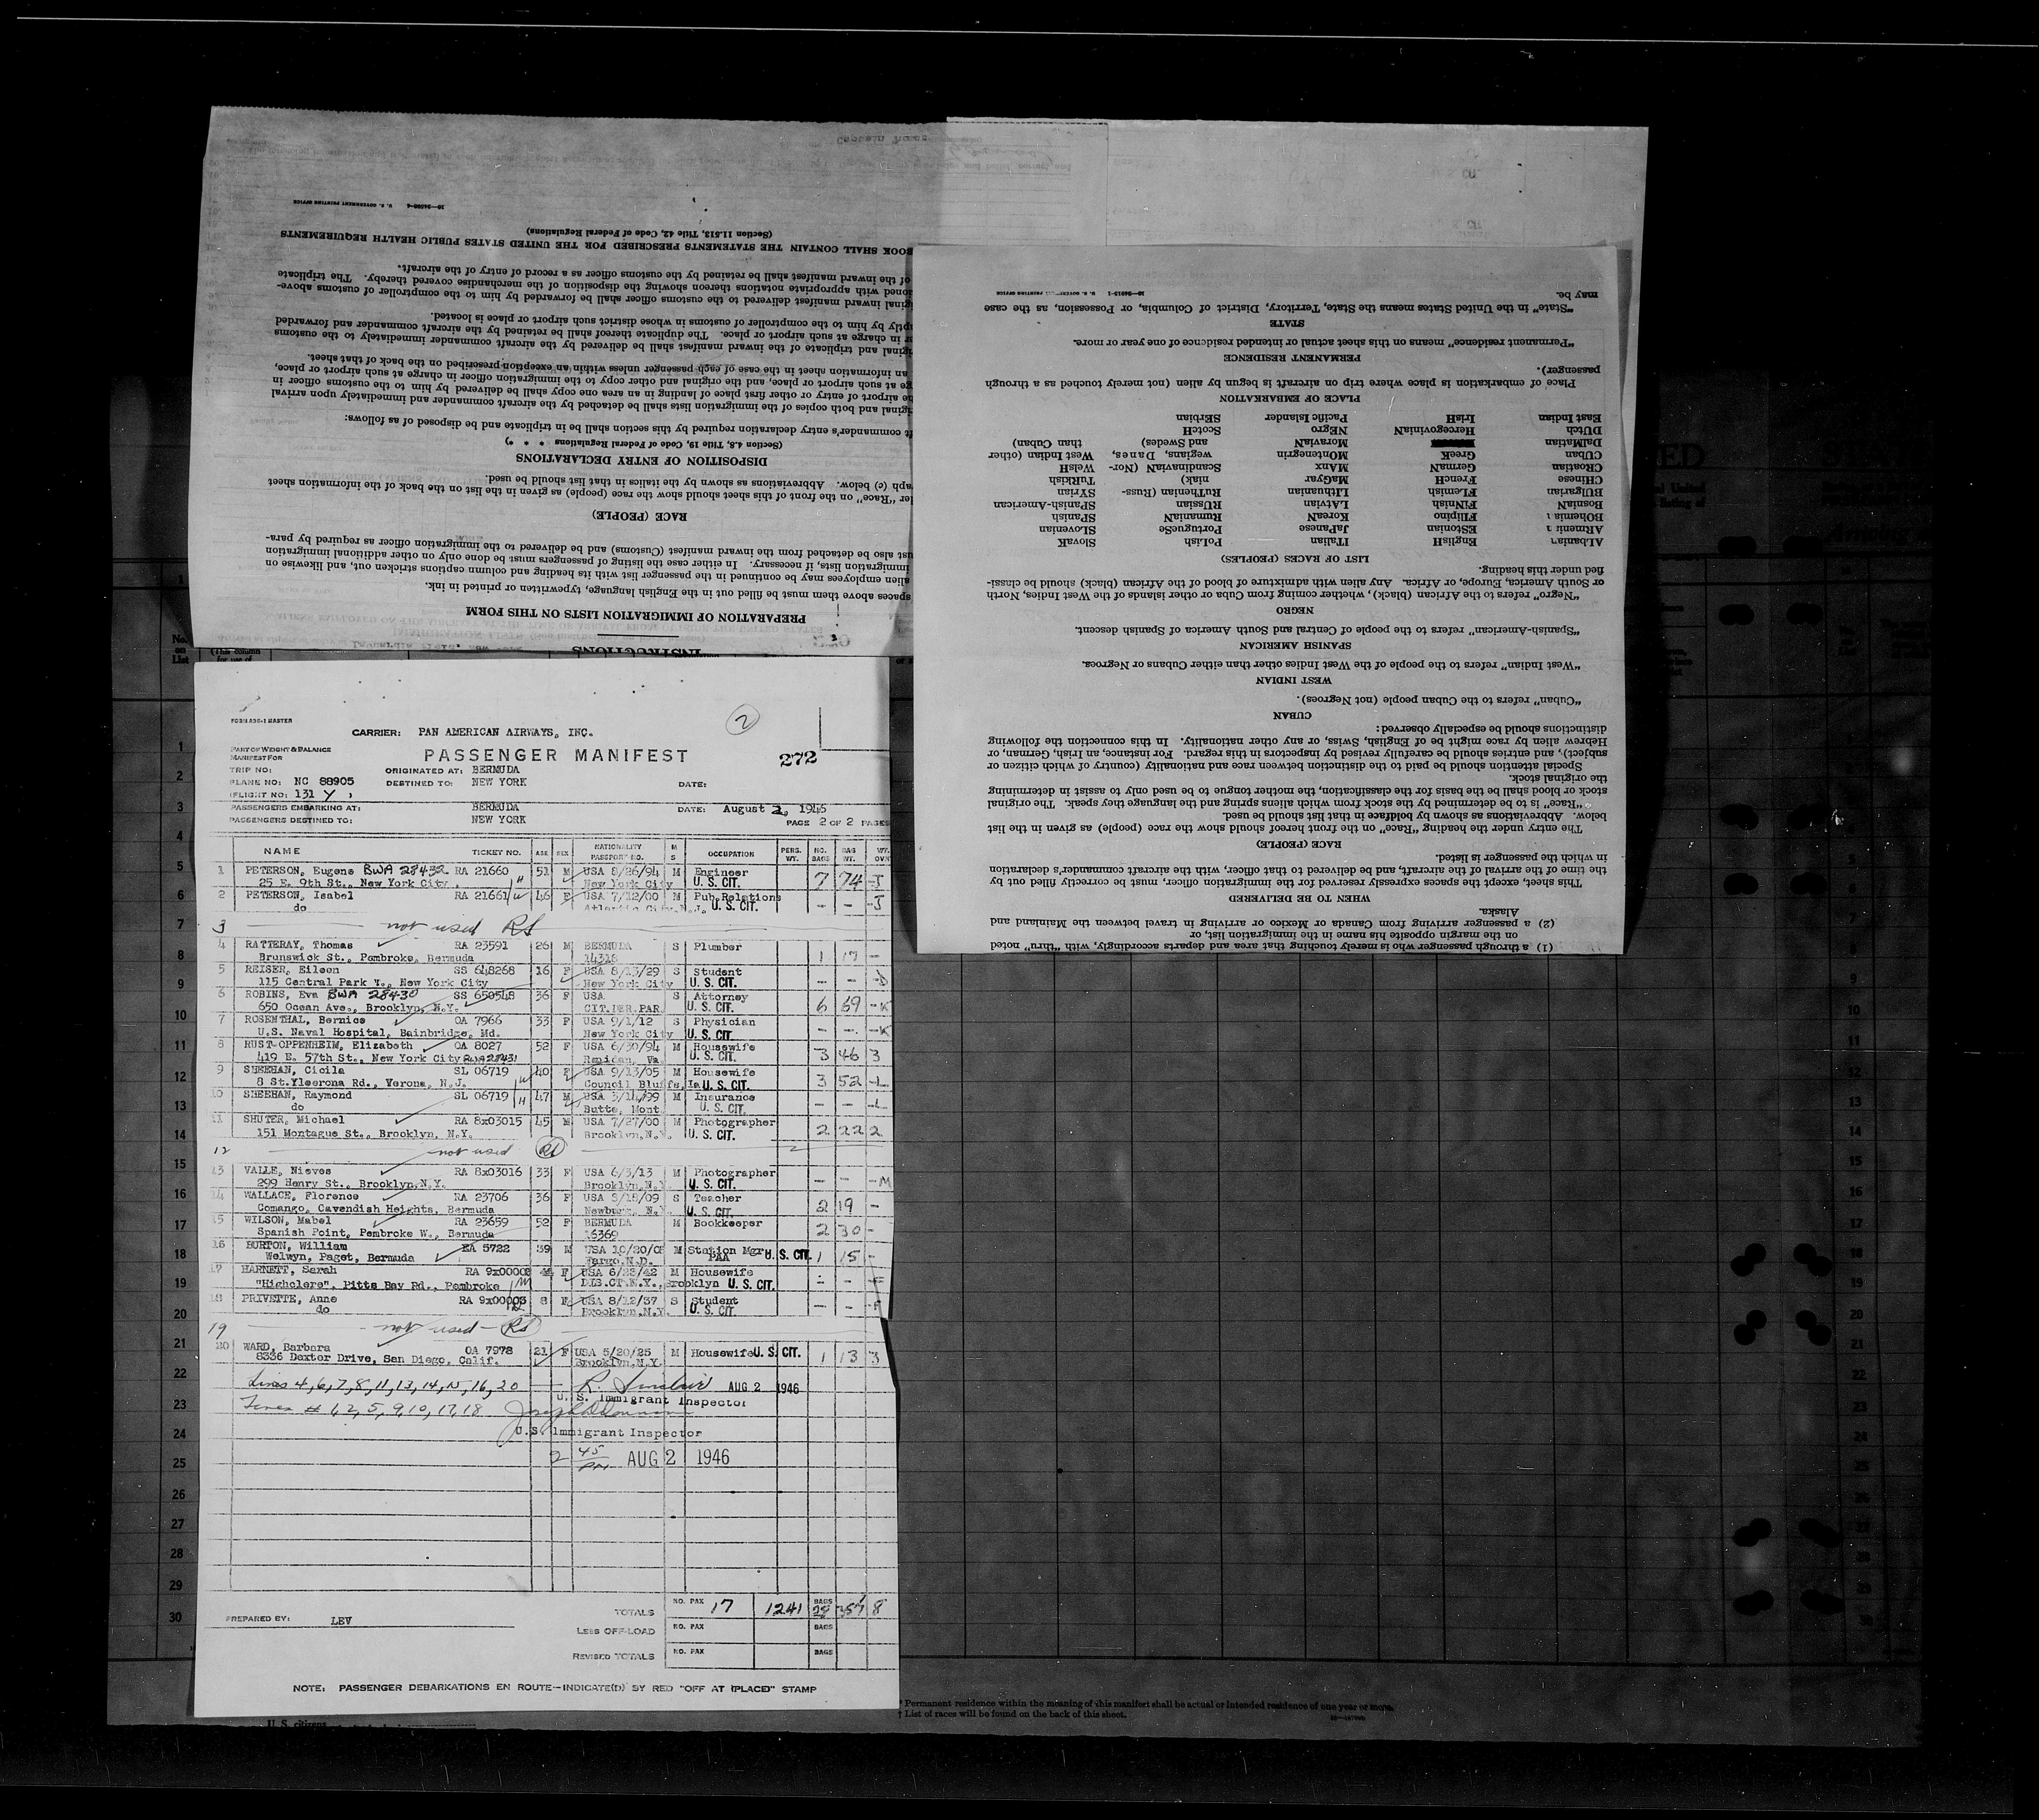 FORM ADS-1 MASTER
2
CARRIER: PAN AMERICAN AIRWAYS, INC.
PART OF WEIGHT & BALANCE
MANIFEST FOR
PASSENGER MANIFEST 272
TRIP NO: ORIGINATED AT: BERMUDA
PLANE NO: NC 88905 DESTINED TO: NEW YORK DATE:
(FLIGHT NO: 131 Y )
PASSENGERS EMBARKING AT: BERMUDA DATE: August 2, 1946
PASSENGERS DESTINED TO: NEW YORK PAGE 2 OF 2 PAGES
NAME TICKET NO. AGE SEX NATIONALITY PASSPORT NO. M S OCCUPATION PERS. WT. NO. BAGS BAG WT. WT. OVR
1 PETERSON, Eugene BWA 28432 RA 21660 51 M USA 8/26/94 M Engineer 7 74 -J
25 E. 9th St., New York City H New York City U. S. CIT.
2 PETERSON, Isabel RA 21661 W 46 F USA 7/12/00 M Pub.Relations - - -J
do Atlantic City, N.J. U. S. CIT.
3 not used RS
4 RATTERAY, Thomas RA 23591 26 M BERMUDA S Plumber 1 17 -
Brunswick St., Pembroke, Bermuda 14318
5 REISER, Eileen SS 648268 16 F USA 8/13/29 S Student
115 Central Park W., New York City New York City U. S. CIT.
6 ROBINS, Eva BWA 28430 SS 650548 36 F USA S Attorney 6 69 -K
650 Ocean Ave., Brooklyn, N.Y. CIT.DER.PAR. U. S. CIT.
7 ROSENTHAL, Bernice OA 7966 33 F USA 9/1/12 S Physician - - -K
U.S. Naval Hospital, Bainbridge, Md. New York City U. S. CIT.
8 RUST-OPPENHEIM, Elizabeth OA 8027 52 F USA 6/30/94 M Housewife 3 46 3
419 E. 57th St., New York City BWA 28431 Rapidan, Va. U. S. CIT.
9 SHEEHAN, Cicila SL 06719 40 F USA 9/13/05 M Housewife 3 52 -L
8 St.Yleerona Rd., Verona, N.J. W Council Bluffs, Ia U. S. CIT.
10 SHEEHAN, Raymond SL 06719 47 M USA 3/14/99 M Insurance - - -L
do H Butte, Mont. U. S. CIT.
11 SHUTER, Michael RA 8x03015 45 M USA 7/27/00 M Photographer 2 22 2
151 Montague St., Brooklyn, N.Y. Brooklyn, N.Y. U. S. CIT.
12 not used RS
13 VALLE, Nieves RA 8x03016 33 F USA 6/3/13 M Photographer - - -M
299 Henry St., Brooklyn,N.Y. Brooklyn,N.Y. U. S. CIT.
14 WALLACE, Florence RA 23706 36 F USA 3/18/09 S Teacher 2 19 -
Comango, Cavendish Heights, Bermuda Newburg, N.Y. U. S. CIT.
15 WILSON, Mabel RA 23659 52 F BERMUDA M Bookkeeper 2 30 -
Spanish Point, Pembroke W., Bermuda 16369
16 BURTON, William EA 5722 39 M USA 10/20/06 M Station Mgr U. S. CIT. 1 15 -
Welwyn, Paget, Bermuda Fargo,N.D. PAA
17 HARNETT, Sarah RA 9x00002 F USA 6/23/42 M Housewife
"Highclere", Pitts Bay Rd., Pembroke DIS.CT.N.Y., Brooklyn U. S. CIT.
18 PRIVETTE, Anne RA 9x00003 8 F USA 8/12/37 S Student
do Brooklyn,N.Y. U. S. CIT.
19 not used - RS
20 WARD, Barbara OA 7978 21 F USA 5/20/25 M Housewife U. S. CIT. 1 13 3
8336 Dexter Drive, San Diego, Calif. Brooklyn,N.Y.
Lines 4, 6, 7, 8, 11, 13, 14, 15, 16, 20 R. Sinclair AUG 2 1946
U. S. Immigrant Inspector
Lines # 1, 2, 5, 9, 10, 17, 18
U.S. Immigrant Inspector
2 45 PM AUG 2 1946
PREPARED BY: LEV
TOTALS NO. PAX 17 1241 BAGS 8
LESS OFF-LOAD NO. PAX BAGS
REVISED TOTALS NO. PAX BAGS
NOTE: PASSENGER DEBARKATIONS EN ROUTE--INDICATE(D) BY RED "OFF AT (PLACE)" STAMP
No. on List
1
2
3
4
5
6
7
8
9
10
11
12
13
14
15
16
17
18
19
20
21
22
23
24
25
26
27
28
29
30
* Permanent residence within the meaning of this manifest shall be actual or intended residence of one year or more.
† List of races will be found on the back of this sheet.
U. S. citizens
INSTRUCTIONS
PREPARATION OF IMMIGRATION LISTS ON THIS FORM
spaces above them must be filled out in the English language, typewritten or printed in ink.
alien employees may be continued in the passenger list with its heading and column captions stricken out, and likewise on
immigration lists, if necessary. In either case the listing of passengers must be done only on other additional immigration
ust also be detached from the inward manifest (Customs) and be delivered to the immigration officer as required by para-
RACE (PEOPLE)
er "Race" on the front of this sheet should show the race (people) as given in the list on the back of the information sheet
aph (c) below. Abbreviations as shown by the italics in that list should be used.
DISPOSITION OF ENTRY DECLARATIONS
(Section 4.8, Title 19, Code of Federal Regulations * * *)
ft commander's entry declaration required by this section shall be in triplicate and be disposed of as follows:
iginal and both copies of the immigration lists shall be detached by the aircraft commander and immediately upon arrival
he airport of entry or other first place of landing in an area one copy shall be delivered by him to the customs officer in
ge at such airport or place, and the original and other copy to the immigration officer in charge at such airport or place,
an information sheet in the case of each passenger unless within an exception prescribed on the back of that sheet.
iginal and triplicate of the inward manifest shall be delivered by the aircraft commander immediately to the customs
r in charge at such airport or place. The duplicate thereof shall be retained by the aircraft commander and forwarded
ptly by him to the comptroller of customs in whose district such airport or place is located.
iginal inward manifest delivered to the customs officer shall be forwarded by him to the comptroller of customs above-
ioned with appropriate notations thereon showing the disposition of the merchandise covered thereby. The triplicate
of the inward manifest shall be retained by the customs officer as a record of entry of the aircraft.
OOK SHALL CONTAIN THE STATEMENTS PRESCRIBED FOR THE UNITED STATES PUBLIC HEALTH REQUIREMENTS
(Section 11.513, Title 42, Code of Federal Regulations)
U. S. GOVERNMENT PRINTING OFFICE
(1) a through passenger who is merely touching that area and departs accordingly, with "thru" noted
on the margin opposite his name in the immigration list, or
(2) a passenger arriving from Canada or Mexico or arriving in travel between the Mainland and
Alaska.
WHEN TO BE DELIVERED
This sheet, except the spaces expressly reserved for the immigration officer, must be correctly filled out by
the time of the arrival of the aircraft, and be delivered to that officer, with the aircraft commander's declaration
in which the passenger is listed.
RACE (PEOPLE)
The entry under the heading "Race" on the front hereof should show the race (people) as given in the list
below. Abbreviations as shown by boldface in that list should be used.
"Race" is to be determined by the stock from which aliens spring and the language they speak. The original
stock or blood shall be the basis for the classification, the mother tongue to be used only to assist in determining
the original stock.
Special attention should be paid to the distinction between race and nationality (country of which citizen or
subject), and entries should be carefully revised by inspectors in this regard. For instance, an Irish, German, or
Hebrew alien by race might be of English, Swiss, or any other nationality. In this connection the following
distinctions should be especially observed:
CUBAN
"Cuban" refers to the Cuban people (not Negroes).
WEST INDIAN
"West Indian" refers to the people of the West Indies other than either Cubans or Negroes.
SPANISH AMERICAN
"Spanish-American" refers to the people of Central and South America of Spanish descent.
NEGRO
"Negro" refers to the African (black), whether coming from Cuba or other islands of the West Indies, North
or South America, Europe, or Africa. Any alien with admixture of blood of the African (black) should be classi-
fied under this heading.
LIST OF RACES (PEOPLES)
ALbanian ENglisH ITalian PoLish SlovaK
ARmenian EStonian JaPanese PortugueSe SLOvenian
BOhemian FIlipino KoreaN RumaniaN SPanish
BosniaN FiNnish LAtvian RUssian SPanish-American
BULgarian FLemish LIthuanian RuThenian (Russ- SYrian
CHinese FrencH MaGyar niak) TurKish
CRoatian GermaN MAnx ScandinaviaN (Nor- WelsH
CUban GreeK MOntenegrin wegians, Danes, West Indian (other
DalMatian MoraviaN and Swedes) than Cuban)
DUtch HercegovinIaN NEgro ScotcH
East Indian IrisH Pacific Islander SErbian
PLACE OF EMBARKATION
Place of embarkation is place where trip on aircraft is begun by alien (not merely touched as a through
passenger).
PERMANENT RESIDENCE
"Permanent residence" means on this sheet actual or intended residence of one year or more.
STATE
"State" in the United States means the State, Territory, District of Columbia, or Possession, as the case
may be.